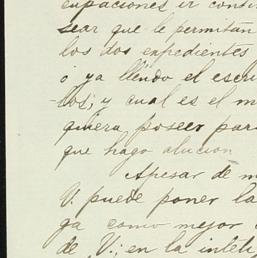 cupaciones ir conti
sear que le permitan
los dos expedientes
ó ya llendo el escri
tos; y cual es el m
quiera poseer par
que hago alucion
Apesar de m
V. puede poner la
ga como mejor
de V.; en la intéli